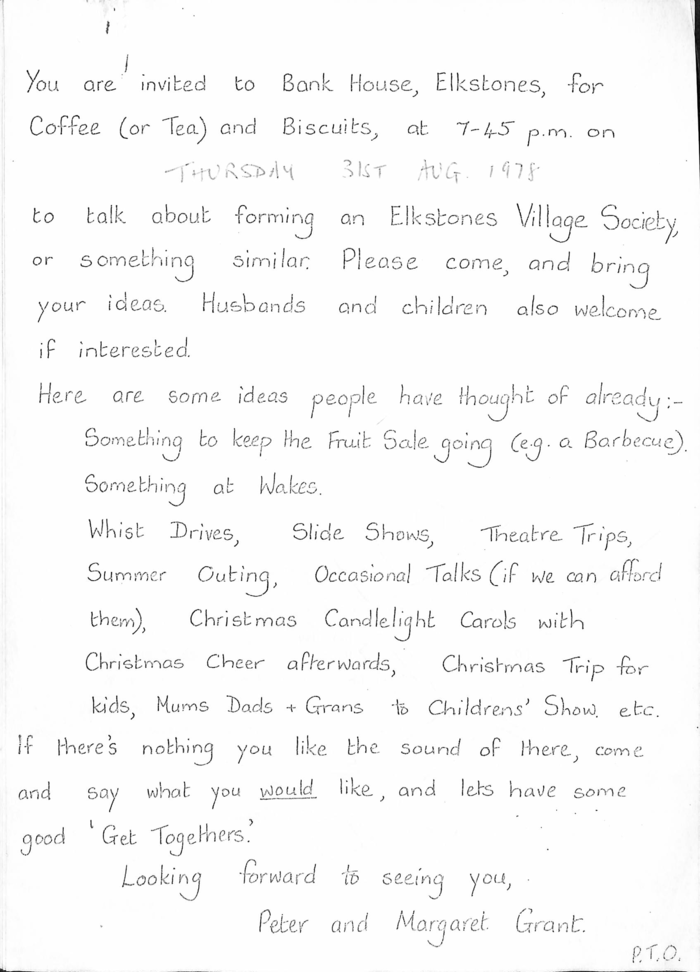 You are invited to Bank House, Elkstones, for
Coffee (or Tea) and Biscuits, at 7-45 p.m. on
THURSDAY 31ST AUG. 1978
to talk about forming an Elkstones Village Society,
or something similar. Please come, and bring
your ideas. Husbands and children also welcome
if interested.
Here are some ideas people have thought of already:-
Something to keep the Fruit Sale going (e.g. a Barbecue).
Something at Wakes.
Whist Drives, Slide Shows, Theatre Trips,
Summer Outing, Occasional Talks (if we can afford
them), Christmas Candlelight Carols with
Christmas Cheer afterwards, Christmas Trip for
kids, Mums Dads + Grans to Childrens' Show. etc.
If there's nothing you like the sound of there, come
and say what you would like, and lets have some
good 'Get Togethers.'
Looking forward to seeing you,
Peter and Margaret Grant.
P.T.O.